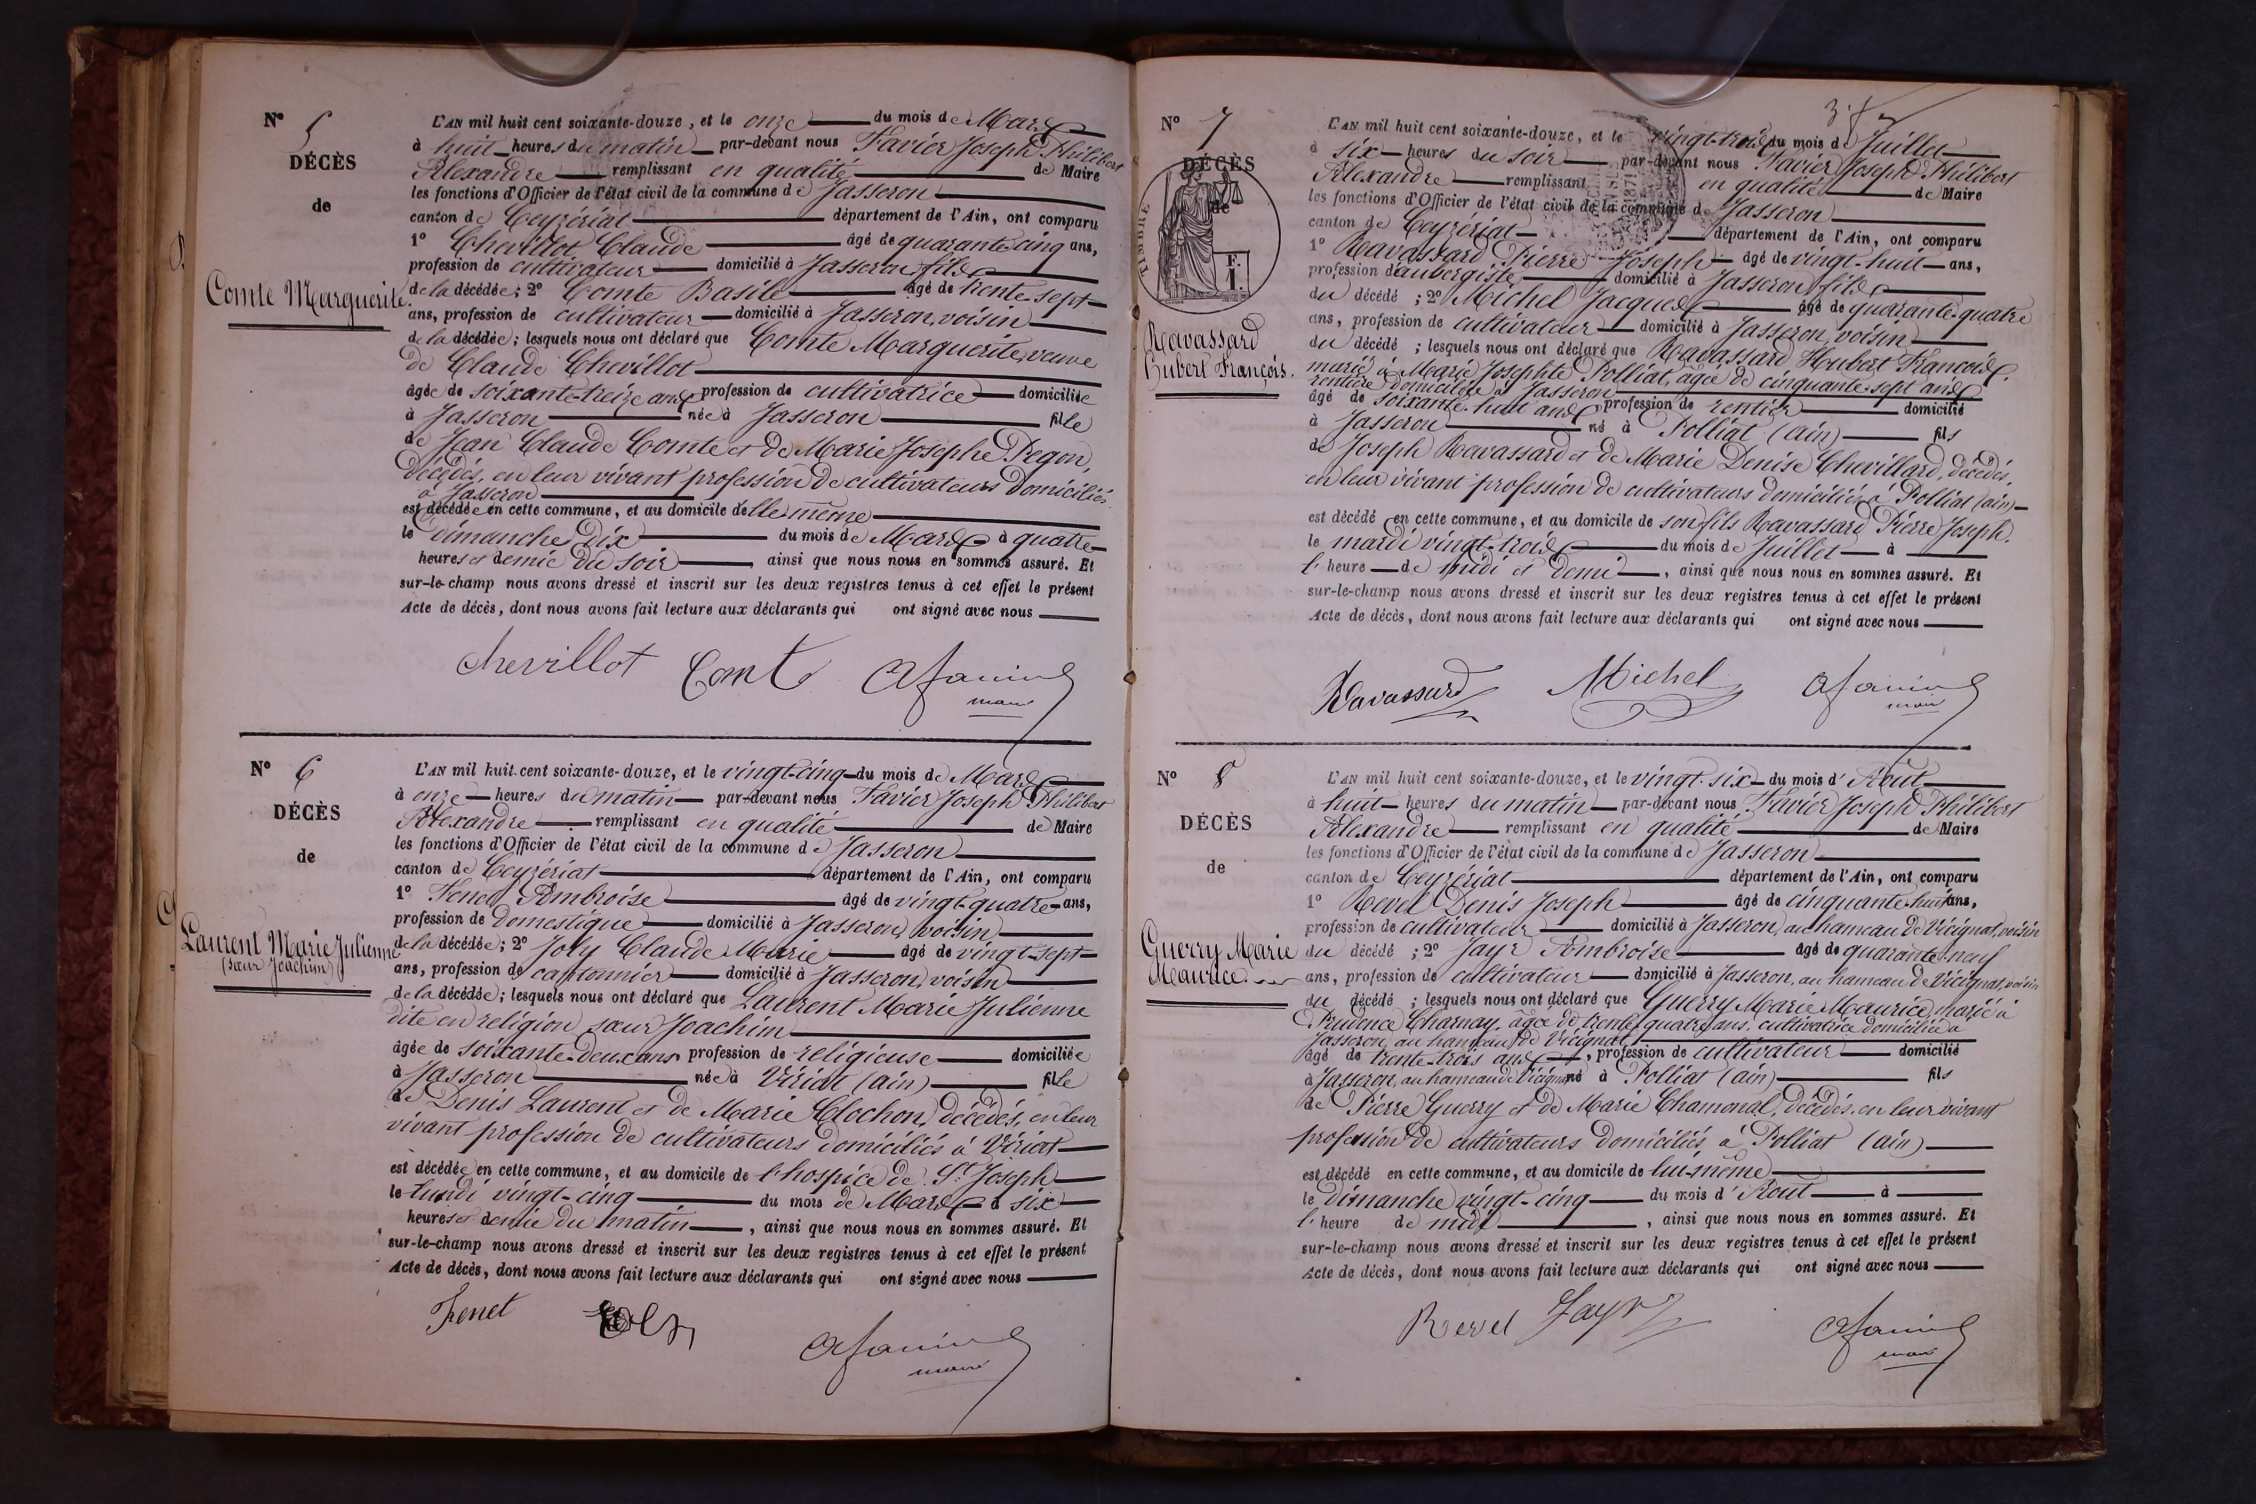 N° 5
DÉCÈS
de
Comte Marguerite
L'AN mil huit cent soixante-douze, et le onze du mois de Mars
à huit heures du matin par-devant nous Favier Joseph Philibert
Alexandre remplissant en qualité de Maire
les fonctions d'Officier de l'état civil de la commune de Jasseron
canton de Ceyzériat département de l'Ain, ont comparu
1° Chevillot Claude âgé de quarante cinq ans,
profession de cultivateur domicilié à Jasseron fils
de la décédée; 2° Comte Basile âgé de trente-sept
ans, profession de cultivateur domicilié à Jasseron, voisin
de la décédée; lesquels nous ont déclaré que Comte Marguerite, veuve
de Claude Chevillot
âgée de soixante-treize ans profession de cultivatrice domiciliée
à Jasseron née à Jasseron fille
de Jean Claude Comte et de Marie Josephe Pegon,
décédés, en leur vivant profession de cultivateurs domiciliés
à Jasseron
est décédée en cette commune, et au domicile d'elle même
le dimanche dix du mois de Mars à quatre
heures et demie du soir ainsi que nous nous en sommes assuré. Et
sur-le-champ nous avons dressé et inscrit sur les deux registres tenus à cet effet le présent
Acte de décès, dont nous avons fait lecture aux déclarants qui ont signé avec nous
Chevillot Comte A favier
maire
N° 6
DÉCÈS
de
Laurent Marie Julienne
(sœur Joachim)
L'AN mil huit cent soixante-douze, et le vingt-cinq du mois de Mars
à onze heures du matin par-devant nous Favier Joseph Philibert
Alexandre remplissant en qualité de Maire
les fonctions d'Officier de l'état civil de la commune de Jasseron
canton de Ceyzériat département de l'Ain, ont comparu
1° Fenet Ambroise âgé de vingt-quatre ans,
profession de domestique domicilié à Jasseron, voisin
de la décédée; 2° Joly Claude Marie âgé de vingt-sept
ans, profession de cantonnier domicilié à Jasseron, voisin
de la décédée; lesquels nous ont déclaré que Laurent Marie Julienne
dite en religion sœur Joachim
âgée de soixante-deux ans profession de religieuse domiciliée
à Jasseron née à Viriat (ain) fille
de Denis Laurent et de Marie Clochon, décédés, en leur
vivant profession de cultivateurs domiciliés à Viriat
est décédée en cette commune, et au domicile de l'hospice de St Joseph
le lundi vingt-cinq du mois de Mars à six
heures et demie du matin, ainsi que nous nous en sommes assuré. Et
sur-le-champ nous avons dressé et inscrit sur les deux registres tenus à cet effet le présent
Acte de décès, dont nous avons fait lecture aux déclarants qui ont signé avec nous
Fenet
A favier
maire
N° 7
DÉCÈS
de
TIMBRE
F.
1.
Ravassard
Hubert François.
L'AN mil huit cent soixante-douze, et le vingt-trois du mois de Juillet
à six heures du soir par-devant nous Favier Joseph Philibert
Alexandre remplissant en qualité de Maire
les fonctions d'Officier de l'état civil de la commune de Jasseron
canton de Ceyzériat département de l'Ain, ont comparu
1° Ravassard Pierre Joseph âgé de vingt-huit ans,
profession d'aubergiste domicilié à Jasseron fils
du décédé; 2° Michel Jacques âgé de quarante-quatre
ans, profession de cultivateur domicilié à Jasseron, voisin
du décédé; lesquels nous ont déclaré que Ravassard Hubert François,
marié à Marie Josephte Polliat, âgée de cinquante-sept ans
rentière domiciliée à Jasseron
âgé de soixante-huit ans profession de rentier domicilié
à Jasseron né à Polliat (ain) fils
de Joseph Ravassard et de Marie Denise Chevillard, décédés,
en leur vivant profession de cultivateurs domiciliés à Polliat (ain)
est décédé en cette commune, et au domicile de son fils Ravassard Pierre Joseph.
le mardi vingt-trois du mois de Juillet à
l'heure de midi et demi, ainsi que nous nous en sommes assuré. Et
sur-le-champ nous avons dressé et inscrit sur les deux registres tenus à cet effet le présent
Acte de décès, dont nous avons fait lecture aux déclarants qui ont signé avec nous
Ravassard Michel A favier
maire
N° 8
DÉCÈS
de
Guerry Marie
Maurice.
L'AN mil huit cent soixante-douze, et le vingt-six du mois d'Août
à huit heures du matin par-devant nous Favier Joseph Philibert
Alexandre remplissant en qualité de Maire
les fonctions d'Officier de l'état civil de la commune de Jasseron
canton de Ceyzériat département de l'Ain, ont comparu
1° Revel Denis Joseph âgé de cinquante-huit ans,
profession de cultivateur domicilié à Jasseron, au hameau de Vicignat, voisin
du décédé; 2° Jayr Ambroise âgé de quarante-neuf
ans, profession de cultivateur domicilié à Jasseron, au hameau de Vicignat, voisin
du décédé; lesquels nous ont déclaré que Guerry Marie Maurice, marié à
Prudence Charnay, âgée de trente quatre ans, cultivatrice domiciliée à
Jasseron au hameau de Vicignat
âgé de trente-trois ans, profession de cultivateur domicilié
à Jasseron, au hameau de Vicignat né à Polliat (ain) fils
de Pierre Guerry et de Marie Chamonal, décédés, en leur vivant
profession de cultivateurs domiciliés à Polliat (ain)
est décédé en cette commune, et au domicile de lui-même
le dimanche vingt-cinq du mois d'Août à
l'heure de midi, ainsi que nous nous en sommes assuré. Et
sur-le-champ nous avons dressé et inscrit sur les deux registres tenus à cet effet le présent
Acte de décès, dont nous avons fait lecture aux déclarants qui ont signé avec nous
Revel Jayr A favier
maire